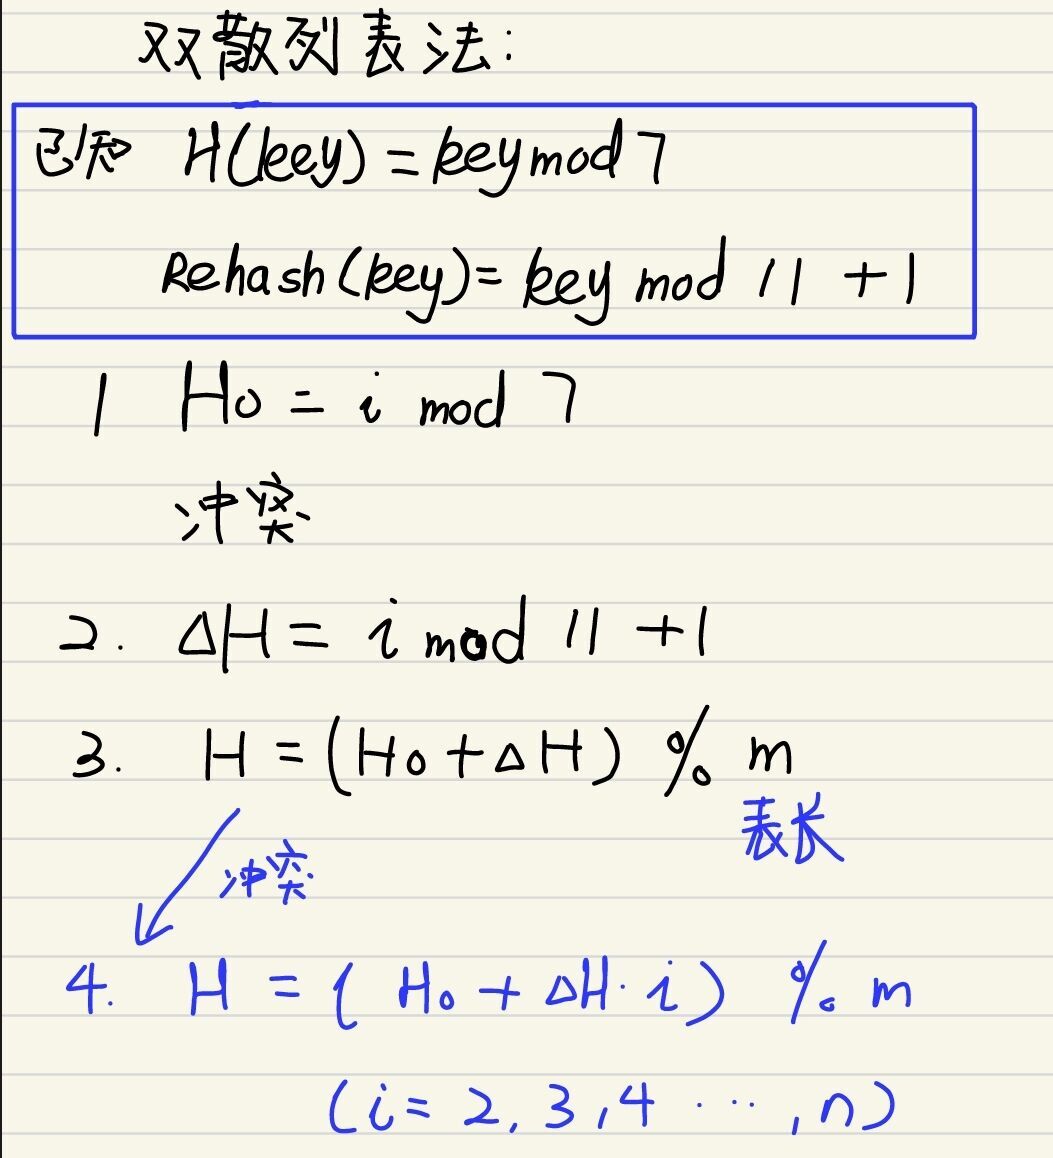 双散列表法:
已知 H(key) = key mod 7
Rehash(key) = key mod 11 +1
1 H0 = i mod 7
冲突
2. ΔH = i mod 11 +1
3. H = (H0 + ΔH) % m
表长
冲突
4. H = ( H0 + ΔH · i ) % m
(i = 2, 3, 4 ···, n)